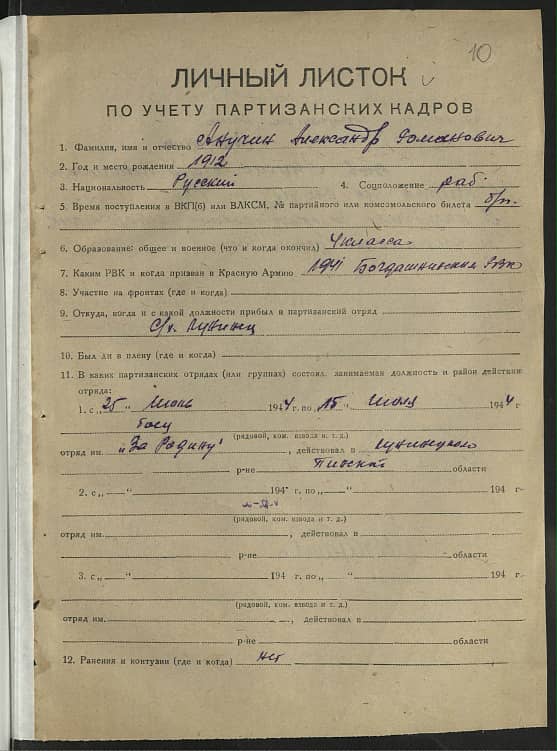 10
ЛИЧНЫЙ ЛИСТОК
ПО УЧЕТУ ПАРТИЗАНСКИХ КАДРОВ
1. Фамилия, имя и отчество Анучин Александр Романович
2. Год и место рождения 1912
3. Национальность Русский 4. Соцположение раб
5. Время поступления в ВКП(б) или ВЛКСМ, № партийного или комсомольского билета б/п.
6. Образование: общее и военное (что и когда окончил) 4 класса
7. Каким РВК и когда призван в Красную Армию 1941 РВК
8. Участие на фронтах (где и когда)
9. Откуда, когда и с какой должности прибыл в партизанский отряд
Лунинец
10. Был ли в плену (где и когда)
11. В каких партизанских отрядах (или группах) состоял, занимаемая должность и район действия
отряда:
1. с „25 " Июнь 1944 г. по „15 " Июля 1944 г
(рядовой, ком. взвода и т. д.)
отряд им. „За Родину" , действовал в Лунинецкого
р-не Пинской области
2. с „ " 194 г. по „ " 194 г.
(рядовой, ком. взвода и т. д.)
отряд им. , действовал в
р-не области
3. с „ " 194 г. по „ " 194 г.
(рядовой, ком. взвода и т. д.)
отряд им. , действовал в
р-не области
12. Ранения и контузии (где и когда) нет